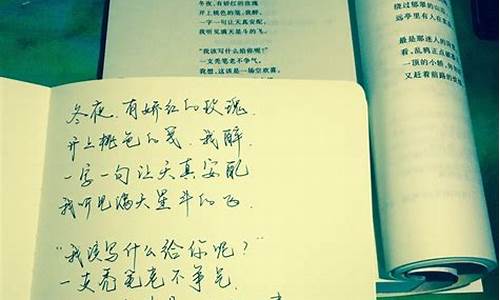 冬夜，有娇红的玫瑰
开上桃色的笺，我醉，
一字一句让天真安配，
我听见满天星斗的飞。
“我该写什么给你呢？”
一支秃笔老不争气。
我想，这该是一场空欢喜。
绕过郁翠的山
远亭里有人在
最是那迷人的
看，乱鸦正点破
一顶的小轿，
又赶着前路的
冬夜，有娇红的玫瑰，
开上桃色的笺，我醉，
一字一句让天真安配
我听见满天星斗的飞
“我该写什么给你呢？”
一支秃笔老不争气